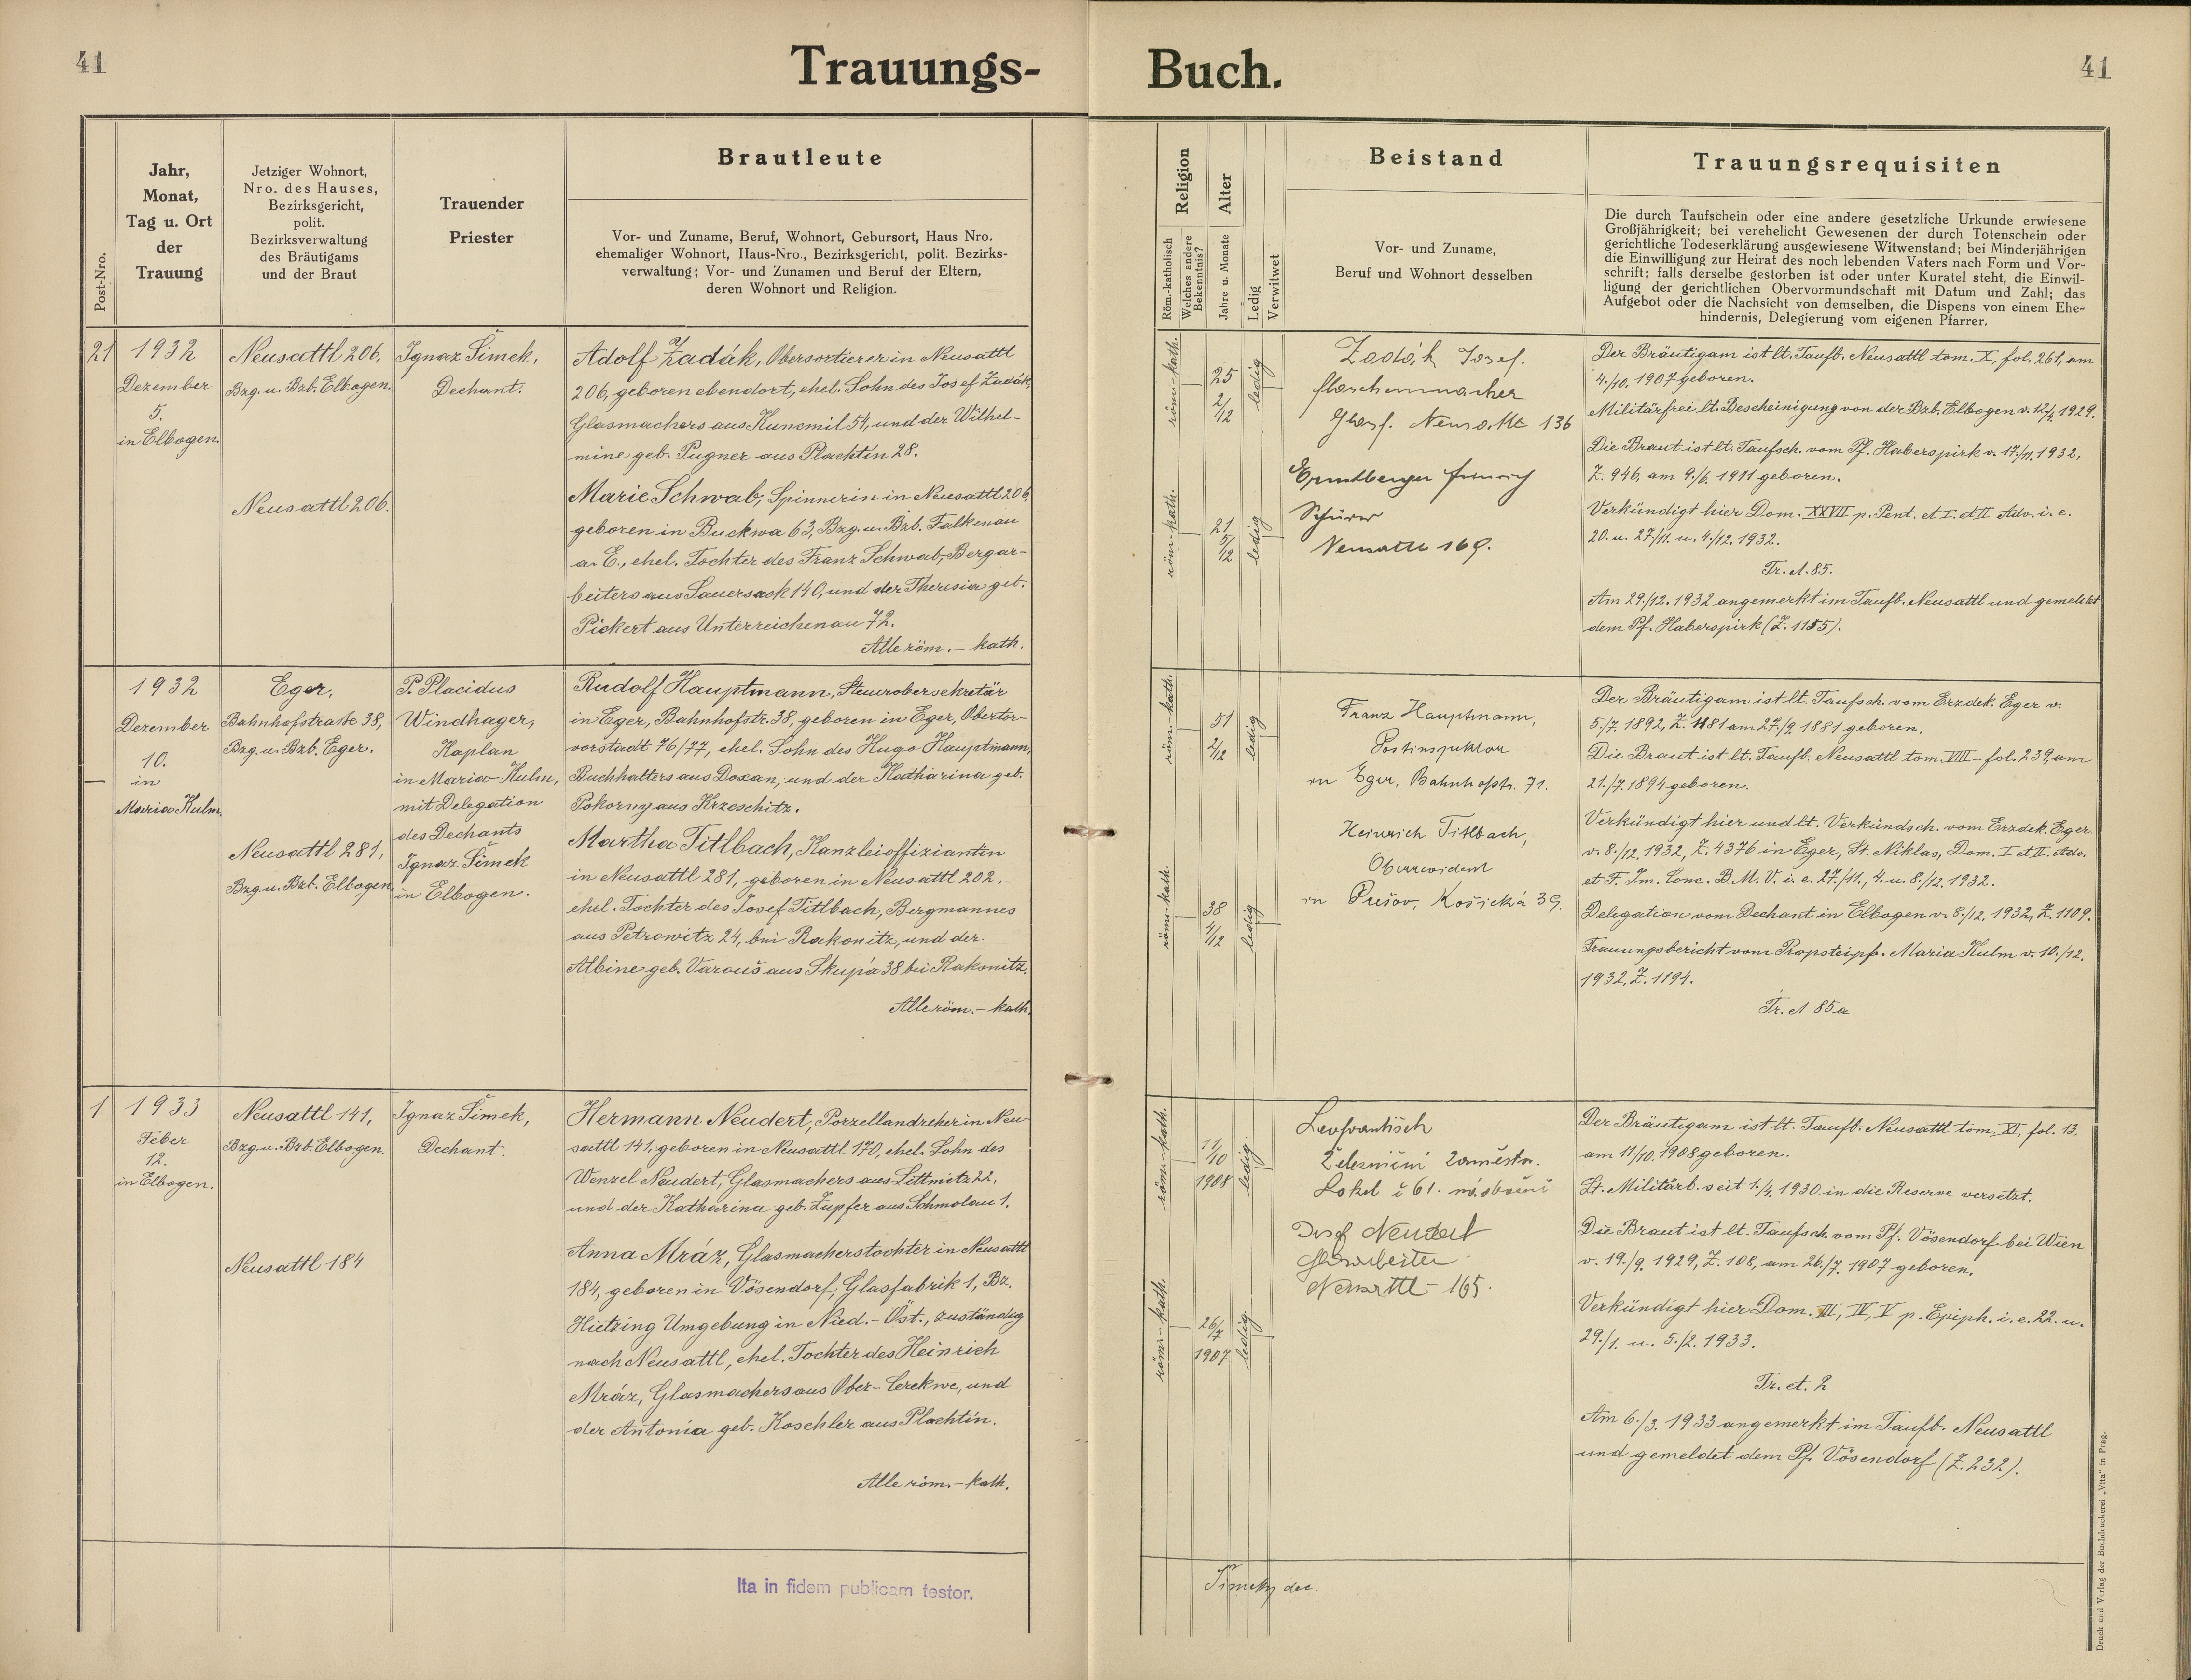 41
Trauungs-
Buch.
41
Post-Nro.
Jahr,
Monat,
Tag u. Ort
der
Trauung
Jetziger Wohnort,
Nro. des Hauses,
Bezirksgericht,
polit.
Bezirksverwaltung
des Bräutigams
und der Braut
Trauender
Priester
Brautleute
Vor- und Zuname, Beruf, Wohnort, Gebursort, Haus Nro.
ehemaliger Wohnort, Haus-Nro., Bezirksgericht, polit. Bezirks-
verwaltung; Vor- und Zunamen und Beruf der Eltern,
deren Wohnort und Religion.
Religion
Röm.-katholisch
Welches andere
Bekenntnis?
Alter
Jahre u. Monate
Ledig
Verwitwet
Beistand
Vor- und Zuname,
Beruf und Wohnort desselben
Trauungsrequisiten
Die durch Taufschein oder eine andere gesetzliche Urkunde erwiesene
Großjährigkeit; bei verehelicht Gewesenen der durch Totenschein oder
gerichtliche Todeserklärung ausgewiesene Witwenstand; bei Minderjährigen
die Einwilligung zur Heirat des noch lebenden Vaters nach Form und Vor-
schrift; falls derselbe gestorben ist oder unter Kuratel steht, die Einwil-
ligung der gerichtlichen Obervormundschaft mit Datum und Zahl; das
Aufgebot oder die Nachsicht von demselben, die Dispens von einem Ehe-
hindernis, Delegierung vom eigenen Pfarrer.
21
1932
Dezember
5.
in Elbogen.
Neusattl 206,
Bzg. u. Bzb. Elbogen.
Neusattl 206.
Ignaz Šimek,
Dechant.
Adolf Žadák, Obersortierer in Neusattl
206, geboren ebendort, ehel. Sohn des Josef Žadák,
Glasmachers aus Kunemil 54, und der Wilhel-
mine geb. Pugner aus Plachtin 28.
Marie Schwab, Spinnerin in Neusattl 206,
geboren in Buckwa 63, Bzg. u. Bzb. Falkenau
a. E., ehel. Tochter des Franz Schwab, Bergar-
beiters aus Sauersack 140, und der Theresia geb.
Pickert aus Unterreichenau 72.
Alle röm.-kath.
röm.-kath.
25
2/12
ledig
röm.-kath.
21
5/12
ledig
Zadák Josef.
flaschenmacher
Glasf. Neusattl 136
Schürer
Neusattl 169.
Der Bräutigam ist lt. Taufb. Neusattl tom. X, fol. 261, am
4./10. 1907 geboren.
Militärfrei lt. Bescheinigung von der Bzb. Elbogen v. 12/4. 1929.
Die Braut ist lt. Taufsch. vom Pf. Haberspirk v. 17./11. 1932,
Z. 946, am 9./6. 1911 geboren.
Verkündigt hier Dom. XXVII p. Pent. et I. et II Adv. i. e.
20. u. 27./11. u. 4./12. 1932.
Tr. A. 85.
Am 29./12. 1932 angemerkt im Taufb. Neusattl und gemeldet
dem Pf. Haberspirk (Z. 1155).
1932
Dezember
10.
in
Maria Kulm
Eger,
Bahnhofstraße 38,
Bzg. u. Bzb. Eger.
Neusattl 281,
Bzg. u. Bzb. Elbogen.
P. Placidus
Windhager,
Kaplan
in Maria-Kulm,
mit Delegation
des Dechants
Ignaz Šimek
in Elbogen.
Rudolf Hauptmann, Steuerobersekretär
in Eger, Bahnhofstr. 38, geboren in Eger, Obertor-
vorstadt 76/77, ehel. Sohn des Hugo Hauptmann,
Buchhalters aus Doxan, und der Katharina geb.
Pokorny aus Krzeschitz.
Martha Titlbach, Kanzleioffiziantin
in Neusattl 281, geboren in Neusattl 202,
ehel. Tochter des Josef Titlbach, Bergmannes
aus Petrowitz 24, bei Rakonitz, und der
Albine geb. Varouš aus Skupá 38 bei Rakonitz.
Alle röm.-kath.
röm.-kath.
51
2/12
ledig
röm.-kath.
38
4/12
ledig
Franz Hauptmann,
Postinspektor
in Eger, Bahnhofstr. 71.
Heinrich Titlbach,
Oberrevident
in Prešov, Košická 39.
Der Bräutigam ist lt. Taufsch. vom Erzdek. Eger v.
5./7. 1892, Z. 1181 am 27./9. 1881 geboren.
Die Braut ist lt. Taufb. Neusattl tom. VIII - fol. 239, am
21./7. 1894 geboren.
Verkündigt hier und lt. Verkündsch. vom Erzdek. Eger
v. 8./12. 1932, Z. 4376 in Eger, St. Niklas, Dom. I et II. Adv.
et F. Im. Conc. B. M. V. i. e. 27./11., 4. u. 8./12. 1932.
Delegation vom Dechant in Elbogen v. 8./12. 1932, Z. 1109.
Trauungsbericht vom Propsteipf. Maria Kulm v. 10./12.
1932, Z. 1194.
Tr. A 85a
1
1933
Feber
12.
in Elbogen.
Neusattl 141,
Bzg. u. Bzb. Elbogen.
Neusattl 184
Ignaz Šimek,
Dechant.
Hermann Neudert, Porzellandreher in Neu-
sattl 141, geboren in Neusattl 170, ehel. Sohn des
Wenzel Neudert, Glasmachers aus Littmitz 22,
und der Katharina geb. Zupfer aus Schmolau 1.
Anna Mráz, Glasmacherstochter in Neusattl
184, geboren in Vösendorf, Glasfabrik 1, Bz.
Hietzing Umgebung in Nied.-Öst., zuständig
nach Neusattl, ehel. Tochter des Heinrich
Mráz, Glasmachers aus Ober-Cerekwe, und
der Antonia geb. Koschler aus Plachtin.
Alle röm.-kath.
röm.-kath.
11/10
1908
ledig
röm.-kath.
26/7
1907
ledig
Železniční zaměstn.
Josef Neudert
Glasarbeiter
Neusattl - 165.
Der Bräutigam ist lt. Taufb. Neusattl tom. XI, fol. 13,
am 11/10. 1908 geboren.
Lt. Militärb. seit 1./4. 1930 in die Reserve versetzt.
Die Braut ist lt. Taufsch. vom Pf. Vösendorf bei Wien
v. 19./9. 1929, Z. 108, am 26./7. 1907 geboren.
Verkündigt hier Dom. III, IV, V p. Epiph. i. e. 22. u.
29./1. u. 5./2. 1933.
Tr. et. 2
Am 6./3. 1933 angemerkt im Taufb. Neusattl
und gemeldet dem Pf. Vösendorf (Z. 232).
Ita in fidem publicam testor.
dec.
Druck und Verlag der Buchdruckerei „Vita" in Prag.